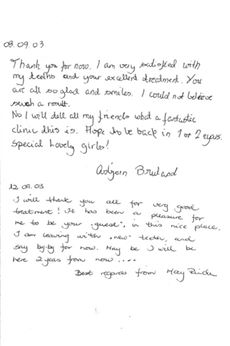 08.09.03
Thank you for now. I am very satisfied with
my teeths and your excellent treatment. You
are all so glad and smiles. I could not believe
such a result.
No I will tell all my friends what a fantastic
clinic this is. Hope to be back in 1 or 2 years.
Special lovely girls!
12.09.03
I will thank you all for very good
treatment! It has been a pleasure for
me to be your "guest", in this nice place.
I am leaving with "new" teeth, and
say by-by for now. May be I will be
here 2 years from now ....
Best regards from May